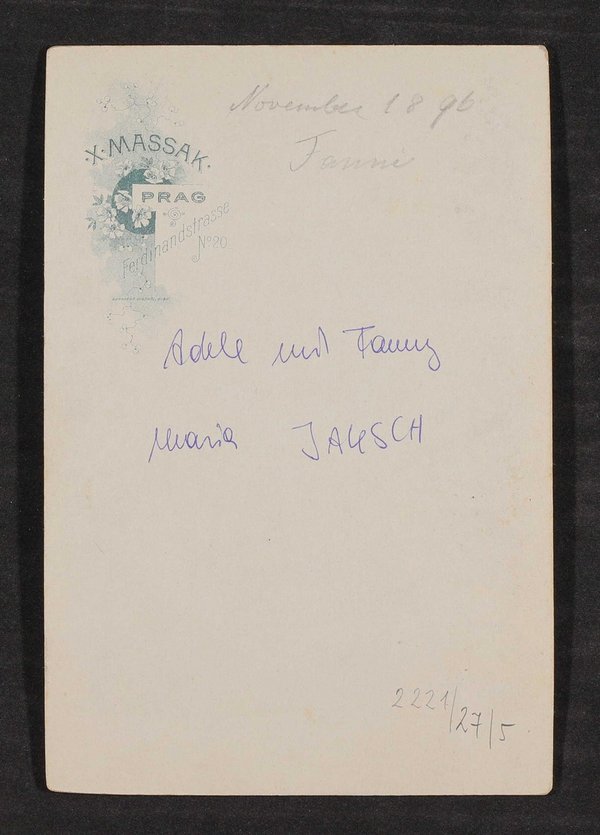 November 1896
Fanni
X. MASSAK.
PRAG
Ferdinandstrasse
No 20.
Adele und Fanny
Maria JAKSCH
2221/27/5